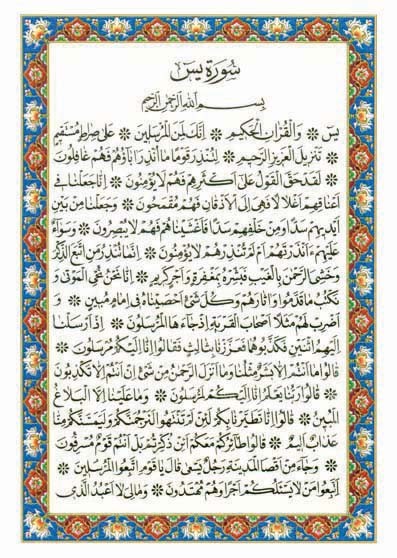 سورة يس
بسم الله الرحمن الرحيم
يس ❊ والقرآن الحكيم ❊ إنك لمن المرسلين ❊ على صراط مستقيم
❊ تنزيل العزيز الرحيم ❊ لتنذر قوما ما أنذر آباؤهم فهم غافلون
❊ لقد حق القول على أكثرهم فهم لا يؤمنون ❊ إنا جعلنا في
أعناقهم أغلالا فهي إلى الأذقان فهم مقمحون ❊ وجعلنا من بين
أيديهم سدا ومن خلفهم سدا فأغشيناهم فهم لا يبصرون ❊ وسواء
عليهم ءأنذرتهم أم لم تنذرهم لا يؤمنون ❊ إنما تنذر من اتبع الذكر
وخشي الرحمن بالغيب فبشره بمغفرة وأجر كريم ❊ إنا نحن نحي الموتى و
نكتب ما قدموا وآثارهم وكل شئ أحصيناه في إمام مبين ❊ و
اضرب لهم مثلا أصحاب القرية إذ جاءها المرسلون ❊ إذ أرسلنا
إليهم اثنين فكذبوهما فعززنا بثالث فقالوا إنا إليكم مرسلون ❊
قالوا ما أنتم إلا بشر مثلنا وما أنزل الرحمن من شئ إن أنتم إلا تكذبون
❊ قالوا ربنا يعلم إنا إليكم لمرسلون ❊ وما علينا إلا البلاغ
المبين ❊ قالوا إنا تطيرنا بكم لئن لم تنتهوا لنرجمنكم وليمسنكم منا
عذاب أليم ❊ قالوا طائركم معكم أئن ذكرتم بل أنتم قوم مسرفون
❊ وجاء من أقصا المدينة رجل يسعى قال يا قوم اتبعوا المرسلين ❊
اتبعوا من لا يسئلكم أجرا وهم مهتدون ❊ ومالي لا أعبد الذي